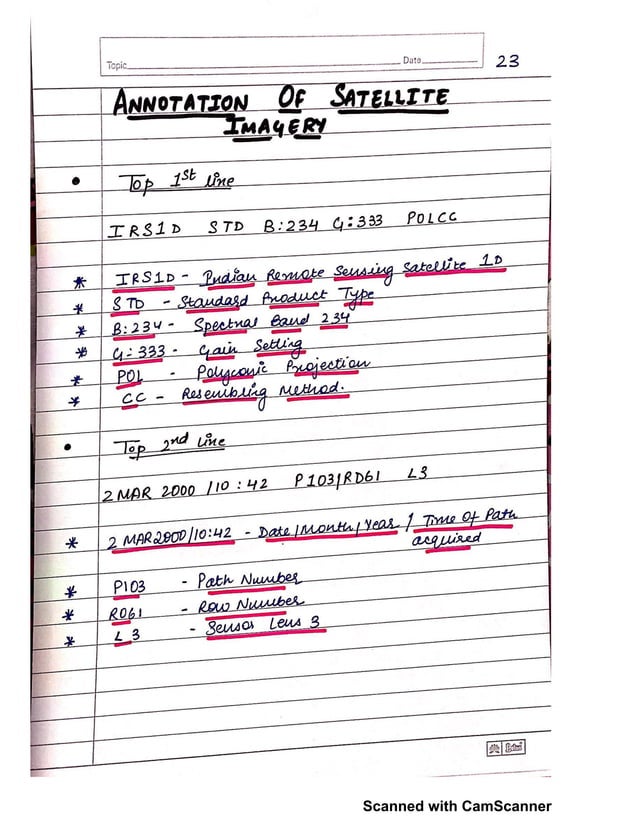 Topic Date 23
ANNOTATION OF SATELLITE
IMAGERY
• Top 1st line
IRS1D STD B:234 G:333 POLCC
* IRS1D - Indian Remote Sensing Satellite 1D
* STD - Standard Product Type
* B:234 - Spectral Band 234
* G:333 - Gain Setting
* POL - Polyconic Projection
* CC - Resembling Method.
• Top 2nd line
2 MAR 2000 /10:42 P103/RD61 L3
* 2 MAR2000/10:42 - Date/Month/Year / Time Of Path
acquired
* P103 - Path Number
* R061 - Row Number
* L3 - Sensor Lens 3
Scanned with CamScanner